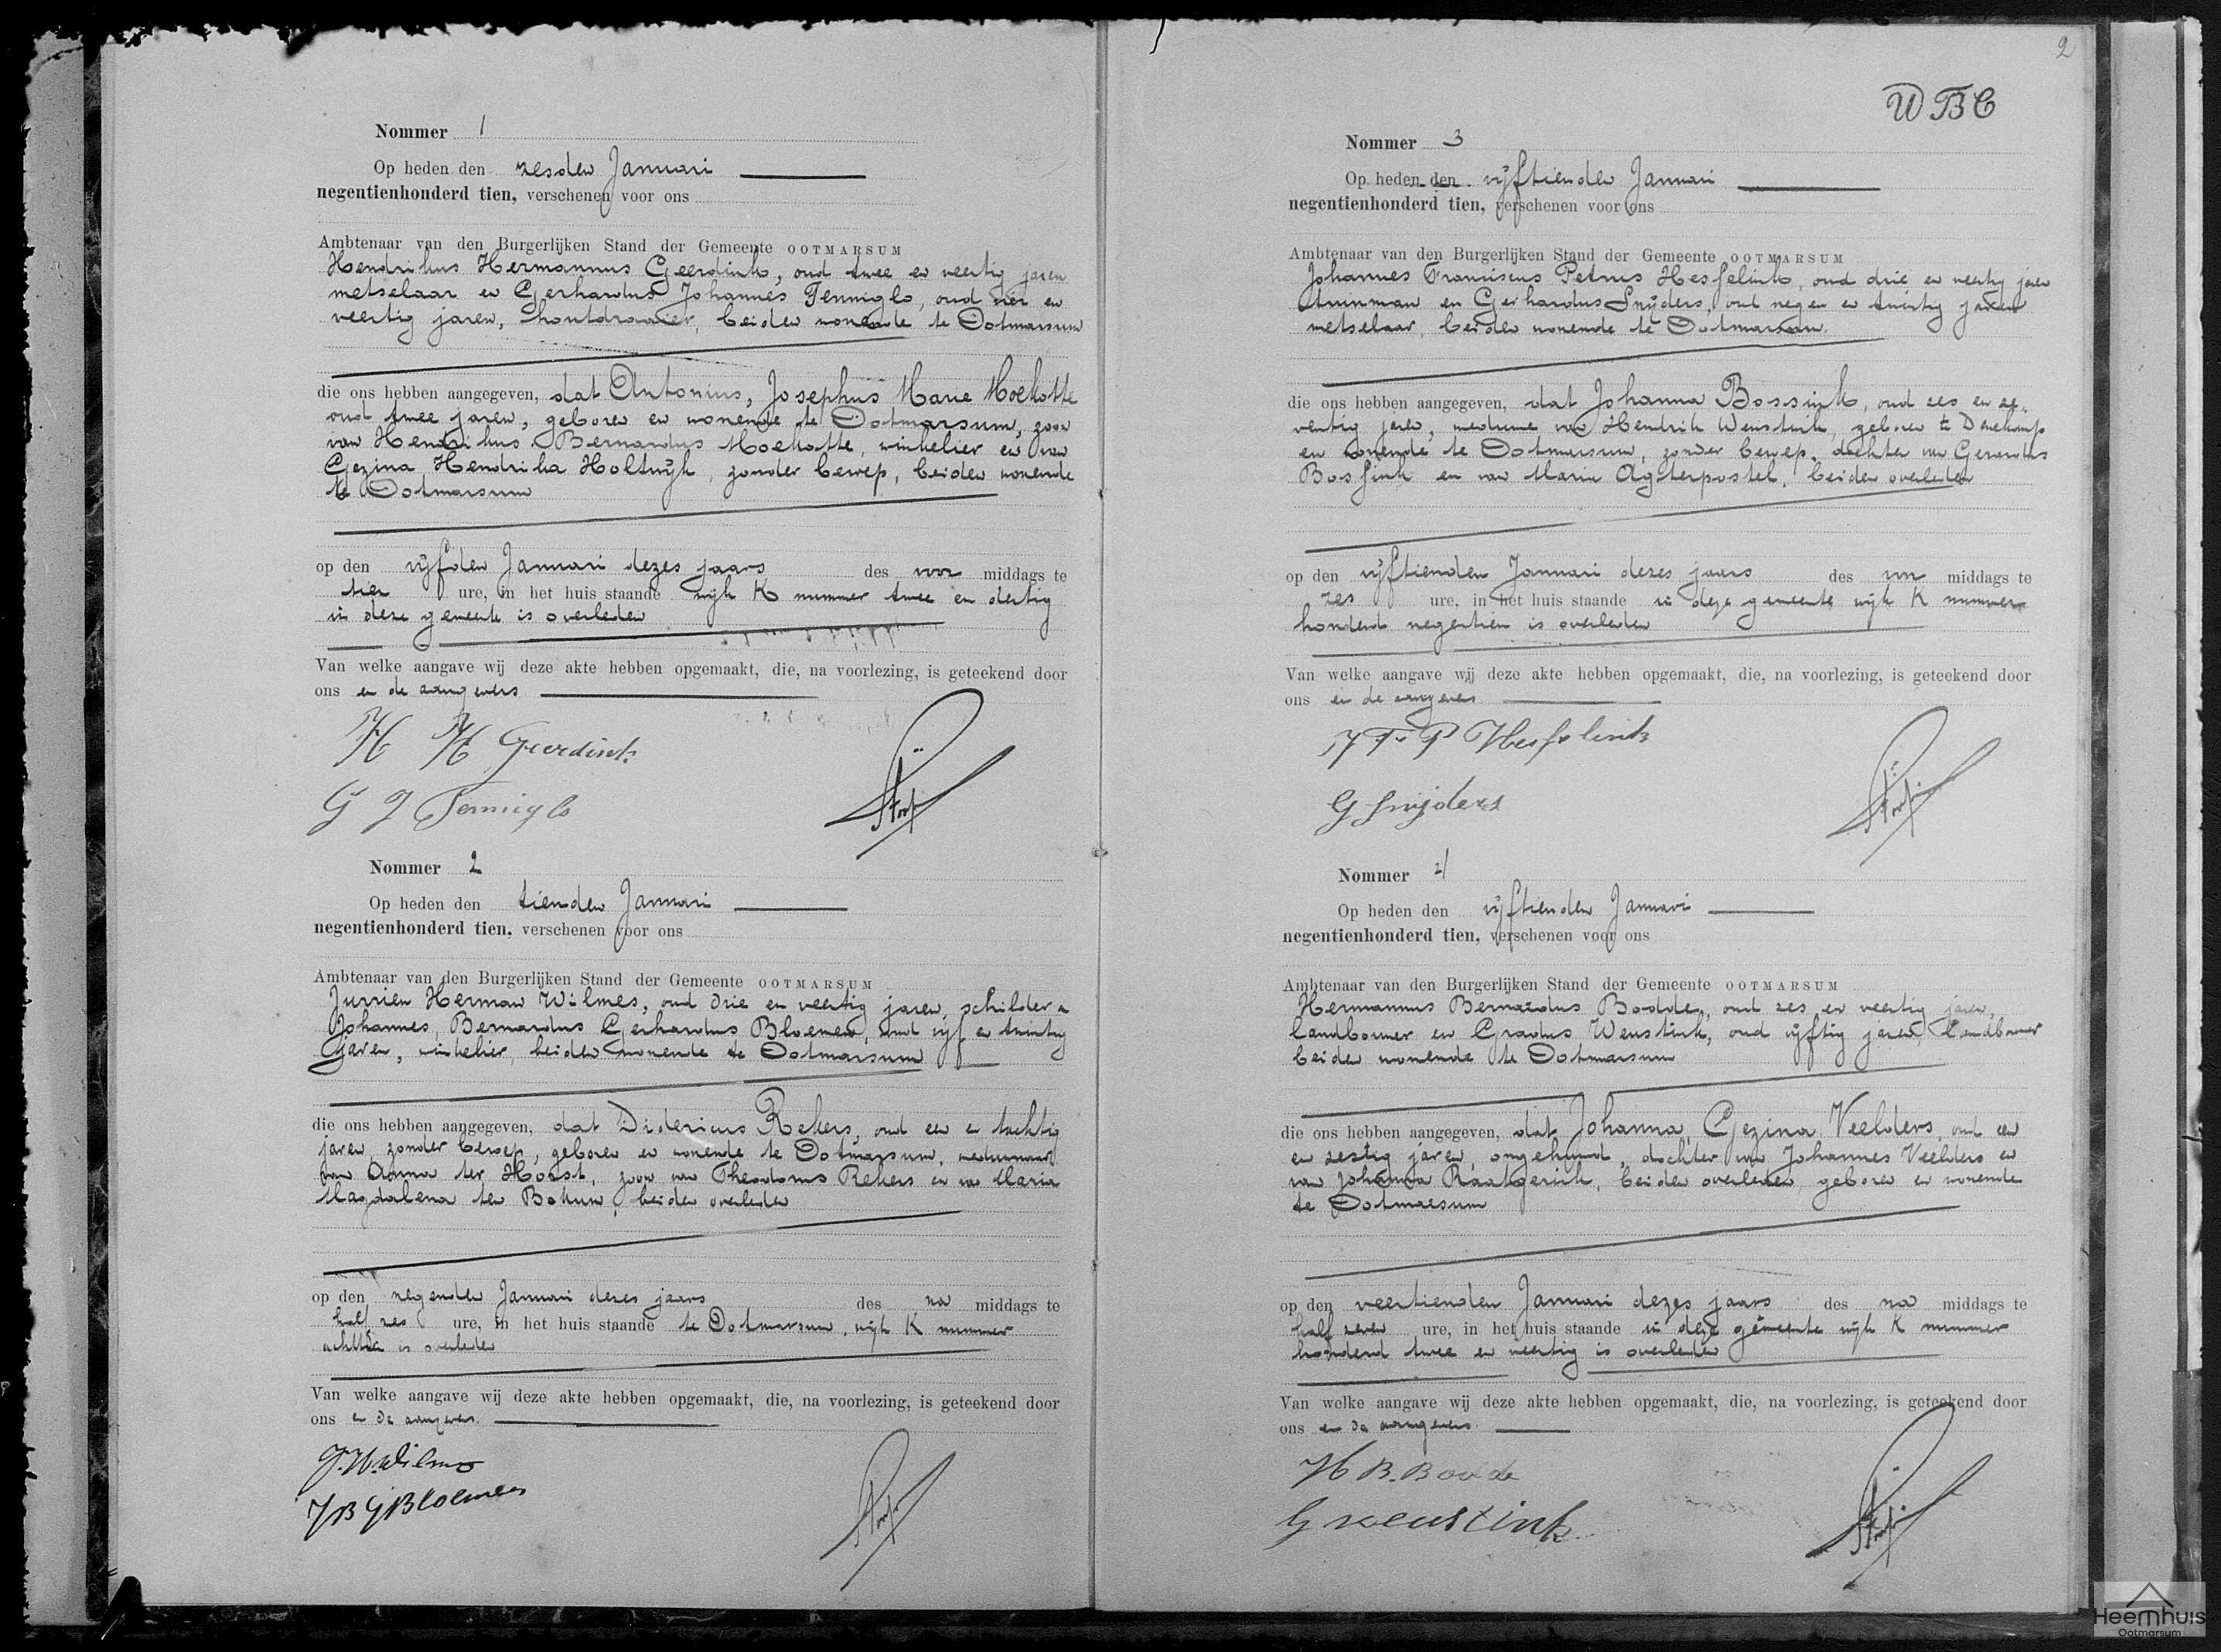 Nommer 1
Op heden den zesden Januari
negentienhonderd tien, verschenen voor ons
Ambtenaar van den Burgerlijken Stand der Gemeente OOTMARSUM
Hendrikus Hermannus Geerdink, oud twee en veertig jaren
metselaar en Gerhardus Johannes Tenniglo, oud vier en
veertig jaren, houtdraaier, beiden wonende te Ootmarsum
die ons hebben aangegeven, dat Antonius, Josephus Marie Moekotte
oud twee jaren, geboren en wonende te Ootmarsum, zoon
van Hendrikus Bernardus Moekotte, winkelier en van
Gezina Hendrika Holtwijk, zonder beroep, beiden wonende
te Ootmarsum
op den vijfden Januari dezes jaars des voor middags te
tien ure, in het huis staande wijk K nummer twee en dertig
in deze gemeente is overleden
Van welke aangave wij deze akte hebben opgemaakt, die, na voorlezing, is geteekend door
ons en de aangevers
H H Geerdink
G J Tenniglo
Nommer 2
Op heden den tienden Januari
negentienhonderd tien, verschenen voor ons
Ambtenaar van den Burgerlijken Stand der Gemeente OOTMARSUM
Jurrien Herman Wilmes, oud drie en veertig jaren, schilder en
Johannes, Bernardus Gerhardus Bloemen, oud vijf en twintig
jaren, winkelier, beiden wonende te Ootmarsum
die ons hebben aangegeven, dat Didericus Rekers, oud een en tachtig
jaren, zonder beroep, geboren en wonende te Ootmarsum, weduwnaar
van Anna ter Horst, zoon van Theodorus Rekers en van Maria
Magdalena ten Bokum, beiden overleden
op den negenden Januari dezes jaars des na middags te
half zes ure, in het huis staande te Ootmarsum, wijk K nummer
achttien is overleden
Van welke aangave wij deze akte hebben opgemaakt, die, na voorlezing, is geteekend door
ons en de aangevers.
J.H. Wilmes
J B G Bloemen
2
WBC
Nommer 3
Op heden den vijftienden Januari
negentienhonderd tien, verschenen voor ons
Ambtenaar van den Burgerlijken Stand der Gemeente OOTMARSUM
Johannes Franciscus Petrus Hesselink, oud drie en veertig jaren
en Gerhardus Snijders, oud negen en twintig jaren
metselaar, beiden wonende te Ootmarsum.
die ons hebben aangegeven, dat Johanna Bossink, oud zes en ze-
ventig jaren, weduwe van Hendrik Weustink, geboren te Denekamp
en wonende te Ootmarsum, zonder beroep, dochter van Gerardus
Bossink en van Maria Agterpostel, beiden overleden
op den vijftienden Januari dezes jaars des voor middags te
zes ure, in het huis staande in deze gemeente wijk K nummer
honderd negentien is overleden
Van welke aangave wij deze akte hebben opgemaakt, die, na voorlezing, is geteekend door
ons en de aangevers
J F P Hesselink
G Snijders
Nommer 4
Op heden den vijftienden Januari
negentienhonderd tien, verschenen voor ons
Ambtenaar van den Burgerlijken Stand der Gemeente OOTMARSUM
Hermannus Bernardus Bodde, oud zes en veertig jaren,
landbouwer en Gradus Weustink, oud vijftig jaren, landbouwer
beiden wonende te Ootmarsum
die ons hebben aangegeven, dat Johanna, Gezina, Veelders, oud een
en zestig jaren, ongehuwd, dochter van Johannes Veelders en
van Johanna Raatgerink, beiden overleden, geboren en wonende
te Ootmarsum
op den veertienden Januari dezes jaars des na middags te
half zeven ure, in het huis staande in deze gemeente wijk K nummer
honderd twee en veertig is overleden
Van welke aangave wij deze akte hebben opgemaakt, die, na voorlezing, is geteekend door
ons en de aangevers.
H B. Bodde
G Weustink.
Heemhuis
Ootmarsum